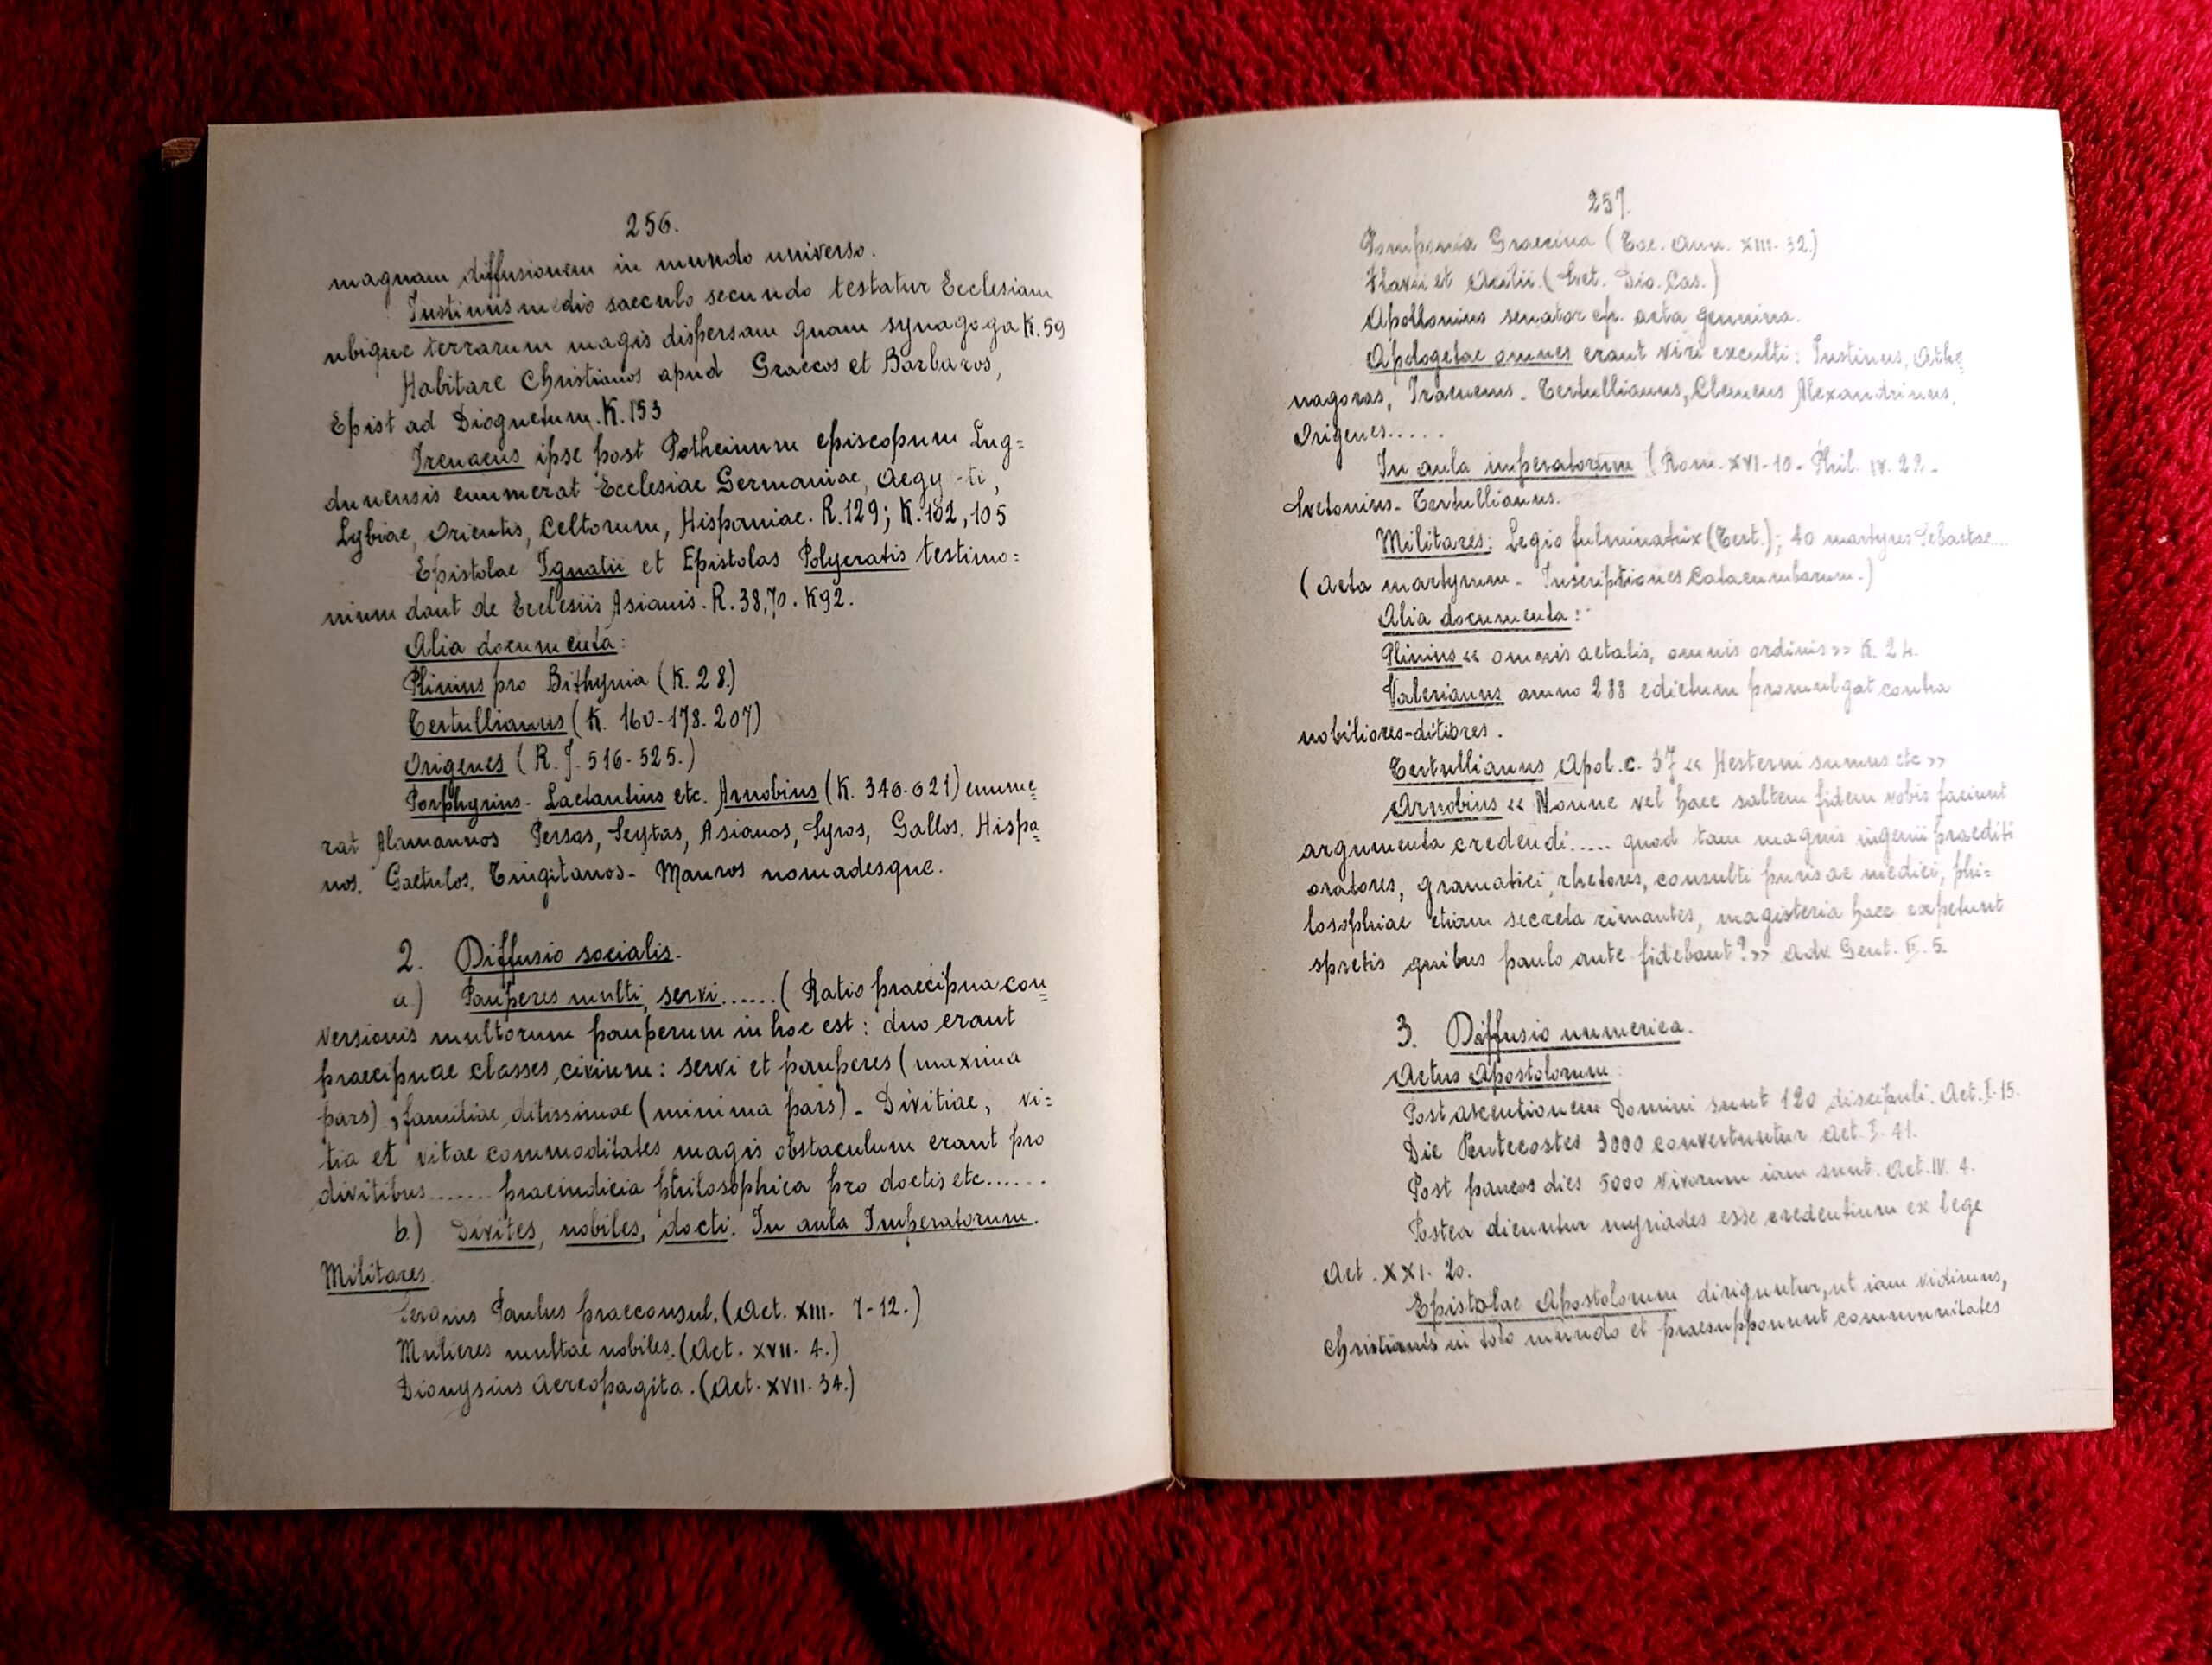 256.
magnam diffusionem in mundo universo.
Iustinus medio saeculo secundo testatur Ecclesiam
ubique terrarum magis dispersam quam synagoga K. 59
Habitare Christianos apud Graecos et Barbaros,
Epist ad Diognetum. K. 153
Irenaeus ipse post Potheinum episcopum Lug=
dunensis enumerat Ecclesiae Germaniae, Aegy ti,
Lybiae, Orientis, Celtorum, Hispaniae. R. 129; K. 102, 105
Epistolae Ignatii et Epistolas Polycratis testimo=
nium dant de Ecclesiis Asianis. R. 38,70. K92.
Alia documenta:
Plinius pro Bithynia (K. 28.)
Tertullianus (K. 160-178. 207)
Origenes (R. J. 516-525.)
Porphyrius - Lactantius etc. Arnobius (K. 346-621) enume=
rat Alamannos Persas, Scytas, Asianos, Syros, Gallos, Hispa=
nos, Gaetulos, Tingitanos - Mauros nomadesque.
2. Diffusio socialis.
a.) Pauperes multi, servi ...... (Ratio praecipua con=
versionis multorum pauperum in hoc est: duo erant
praecipuae classes, civium: servi et pauperes (maxima
pars), familiae ditissimae (minima pars) - Divitiae, vi=
tia et vitae commoditates magis obstaculum erant pro
divitibus ....... praeiudicia philosophica pro doctis etc ......
b.) Divites, nobiles, docti. In aula Imperatorum.
Militares.
Sergius Paulus praeconsul. (Act. XIII. 7-12.)
Mulieres multae nobiles. (Act. XVII. 4.)
Dionysius Aereopagita. (Act. XVII. 34.)
257.
Pomponia Graecina (Tac. Ann. XIII. 32.)
Flavii et Acilii. (Svet. Dio. Cas.)
Apollonius senator cf. acta genuina.
Apologetae omnes erant viri exculti: Iustinus, Athe=
nagoras, Iraeneus - Tertullianus, Clemens Alexandrinus,
Origenes.....
In aula imperatorum (Rom. XVI-10 - Phil. IV. 22 -
Svetonius - Tertullianus.
Militares: Legio fulminatrix (Tert.); 40 martyres Sebastae....
(Acta martyrum - Inscriptiones Catacumbarum.)
Alia documenta:
Plinius « omnis aetatis, omnis ordinis » K. 24.
Valerianus anno 288 edictum promulgat contra
nobiliores-ditiores.
Tertullianus Apol. c. 37 « Hesterni sumus etc »
Arnobius « Nonne vel haec saltem fidem vobis faciunt
argumenta credendi ..... quod tam magnis ingenii praediti
oratores, gramatici, rhetores, consulti juris ac medici, phi=
losophiae etiam secreta rimantes, magisteria haec expetunt
spretis quibus paulo ante fidebant? » Adv. Gent. II. 5.
3. Diffusio numerica.
Actus Apostolorum:
Post ascentionem Domini sunt 120 discipuli. Act. I-15.
Die Pentecostes 3000 convertuntur Act. I. 41.
Post paucos dies 5000 virorum iam sunt. Act. IV. 4.
Postea dicuntur myriades esse credentium ex lege
Act. XXI. 20.
Epistolae Apostolorum diriguntur, ut iam vidimus,
Christianis in toto mundo et praesupponunt communitates